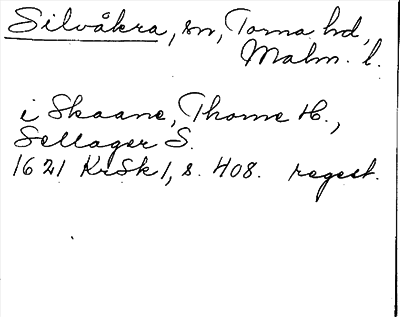 Silvåkra, sn, Torna hd,
Malm. l.
i Skaane, Thorne H.,
Sellager S.
1621 KrSk 1, s. 408. regest.